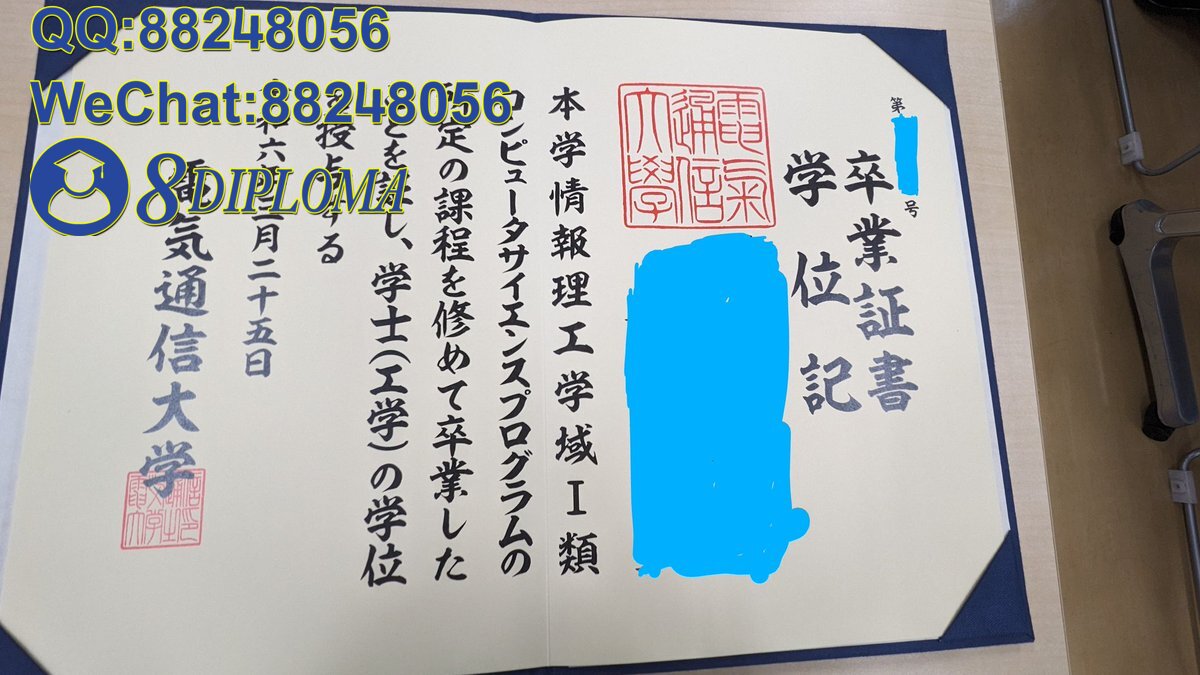 QQ:88248056
WeChat:88248056
8DIPLOMA
第 号
卒業証書
学位記
電氣
通信
大學
本学情報理工学域Ⅰ類
コンピュータサイエンスプログラムの
定の課程を修めて卒業した
とを し、学士(工学)の学位
授与する
和六年三月二十五日
電気通信大学